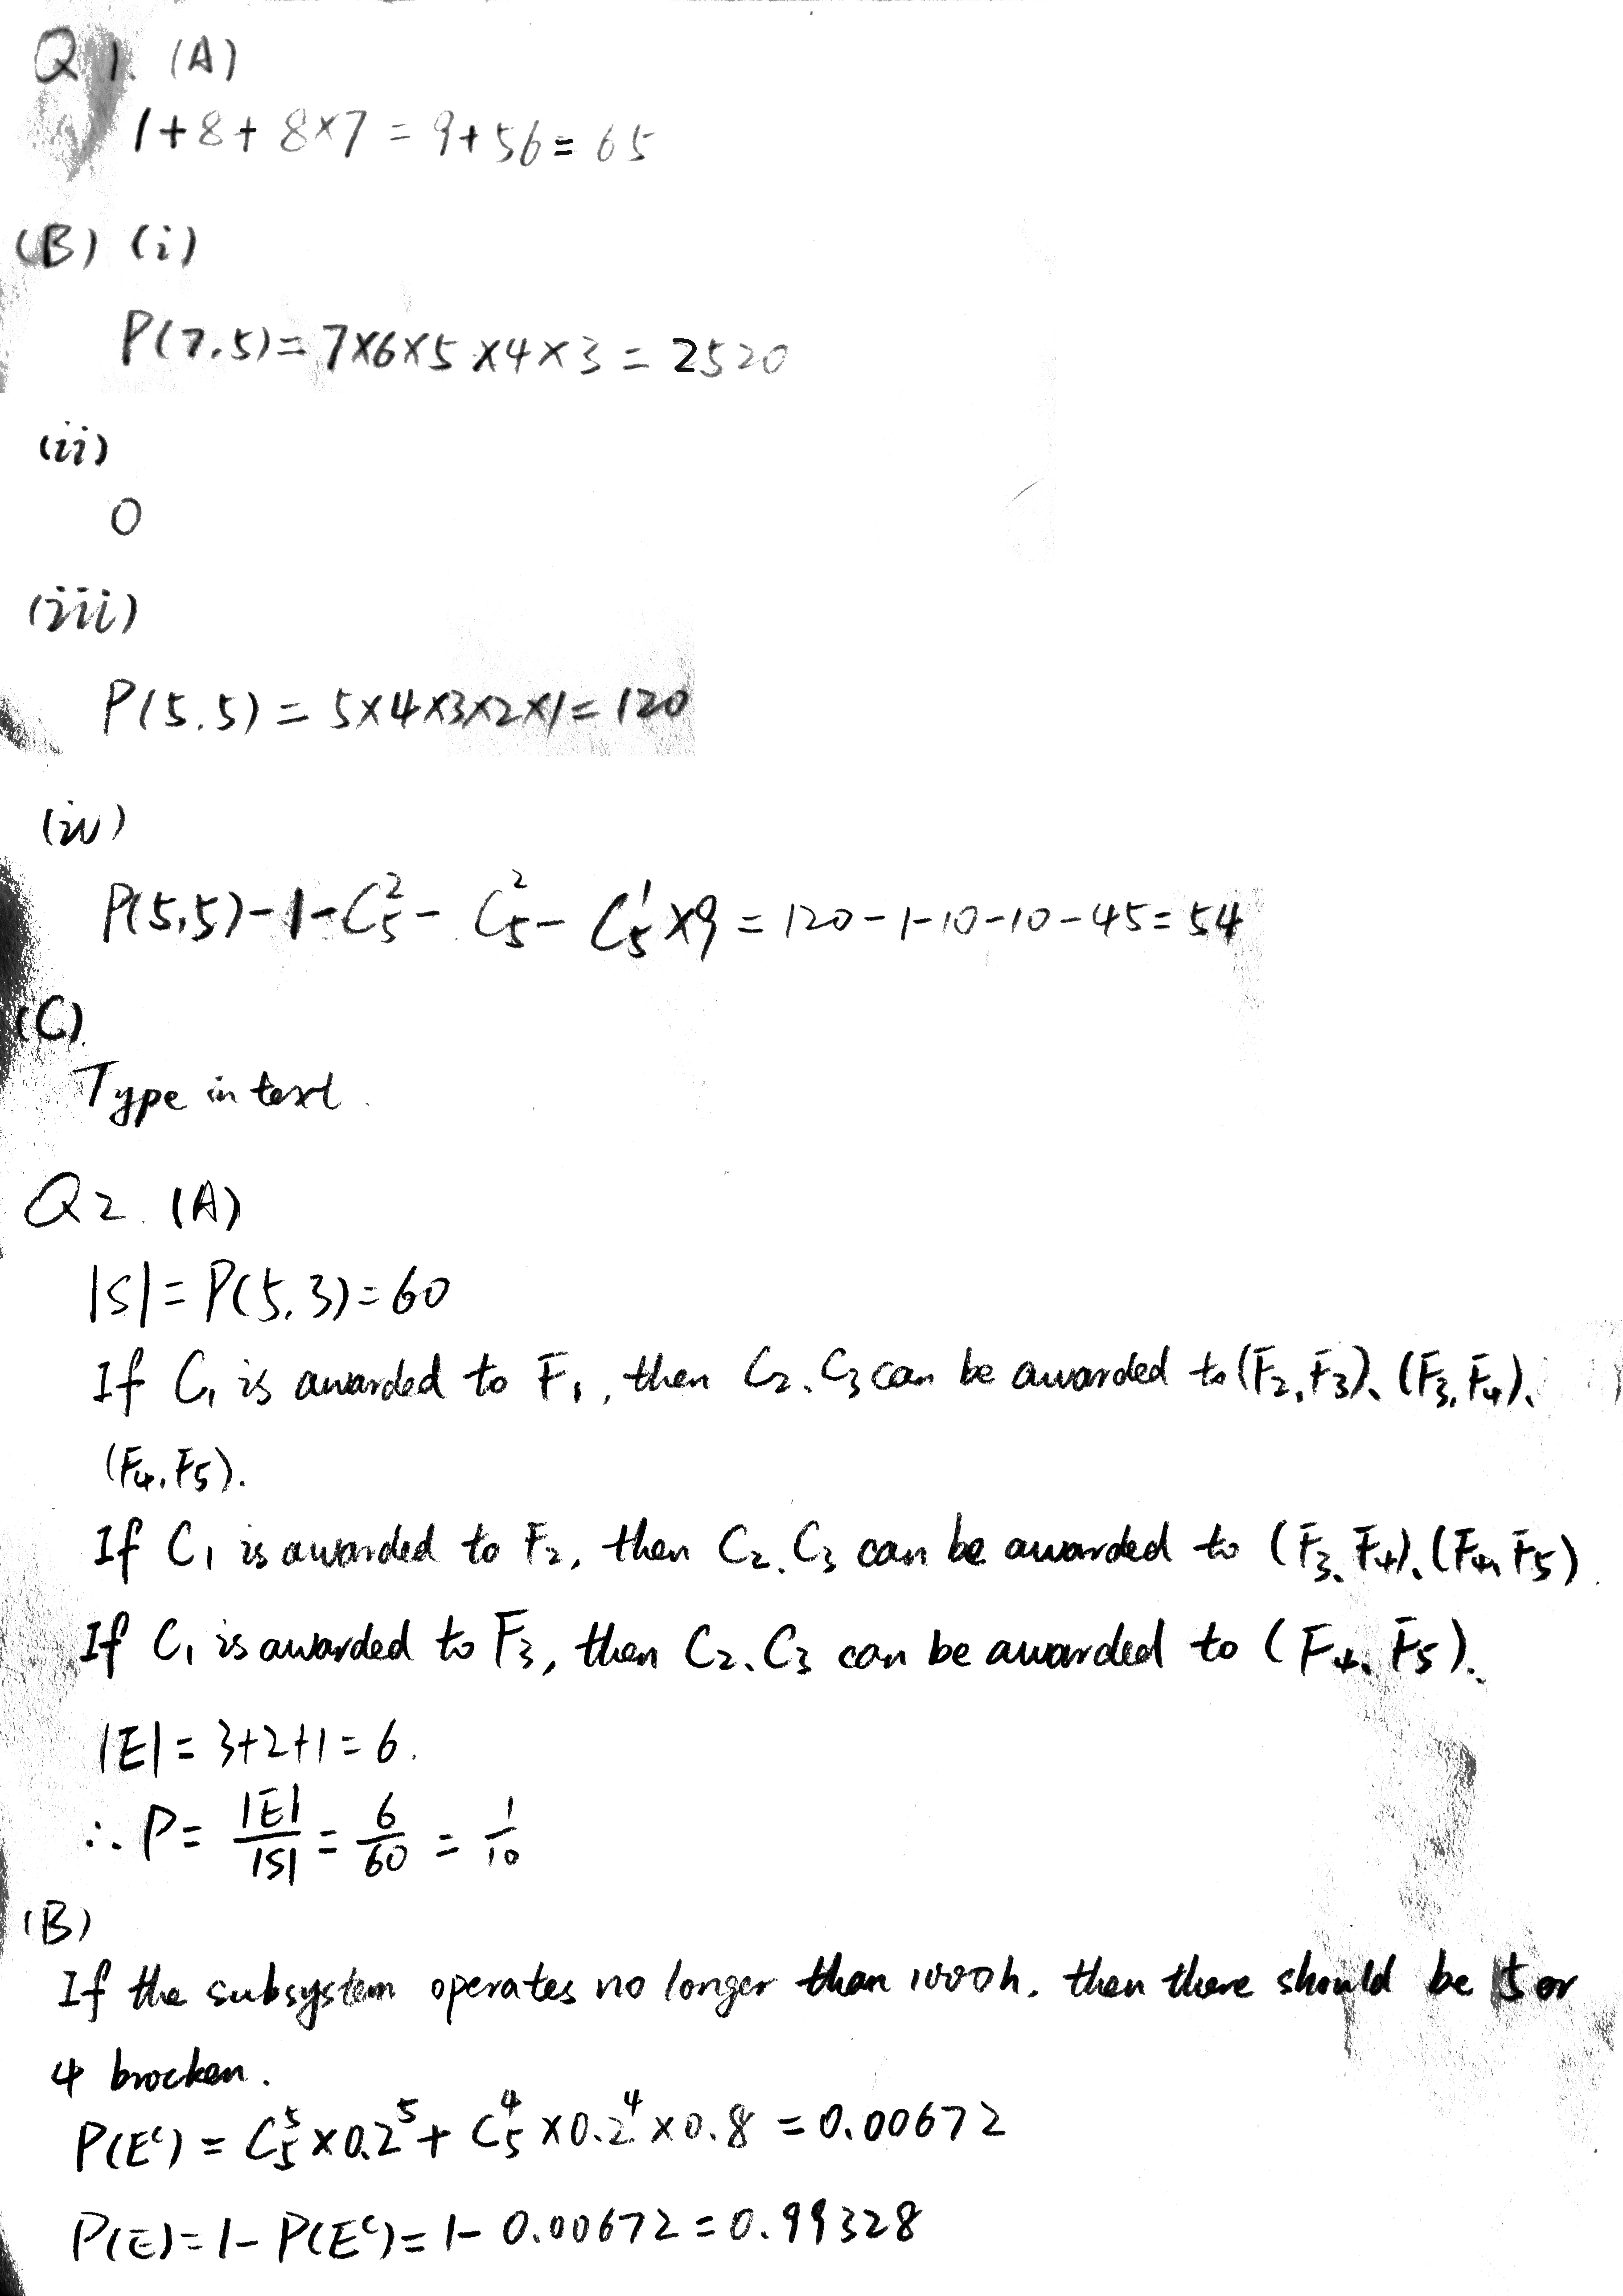 Q1. (A)
1+8+8×7=9+56=65
(B) (i)
P(7.5)=7×6×5×4×3=2520
(ii)
0
(iii)
P(5.5)=5×4×3×2×1=120
(iv)
P(5,5)-1-C₅²-C₅²-C₅¹×9=120-1-10-10-45=54
(C).
Type in text.
Q2. (A)
|S|=P(5.3)=60
If C₁ is awarded to F₁, then C₂、C₃ can be awarded to (F₂,F₃)、(F₃,F₄)、
(F₄,F₅).
If C₁ is awarded to F₂, then C₂、C₃ can be awarded to (F₃、F₄)、(F₄,F₅).
If C₁ is awarded to F₃, then C₂、C₃ can be awarded to (F₄、F₅).
|E|=3+2+1=6.
∴P=|E|/|S|=6/60=1/10
(B)
If the subsystem operates no longer than 1000h, then there should be 5 or
4 brocken.
P(Eᶜ)=C₅⁵×0.2⁵+C₅⁴×0.2⁴×0.8=0.00672
P(E)=1-P(Eᶜ)=1-0.00672=0.99328